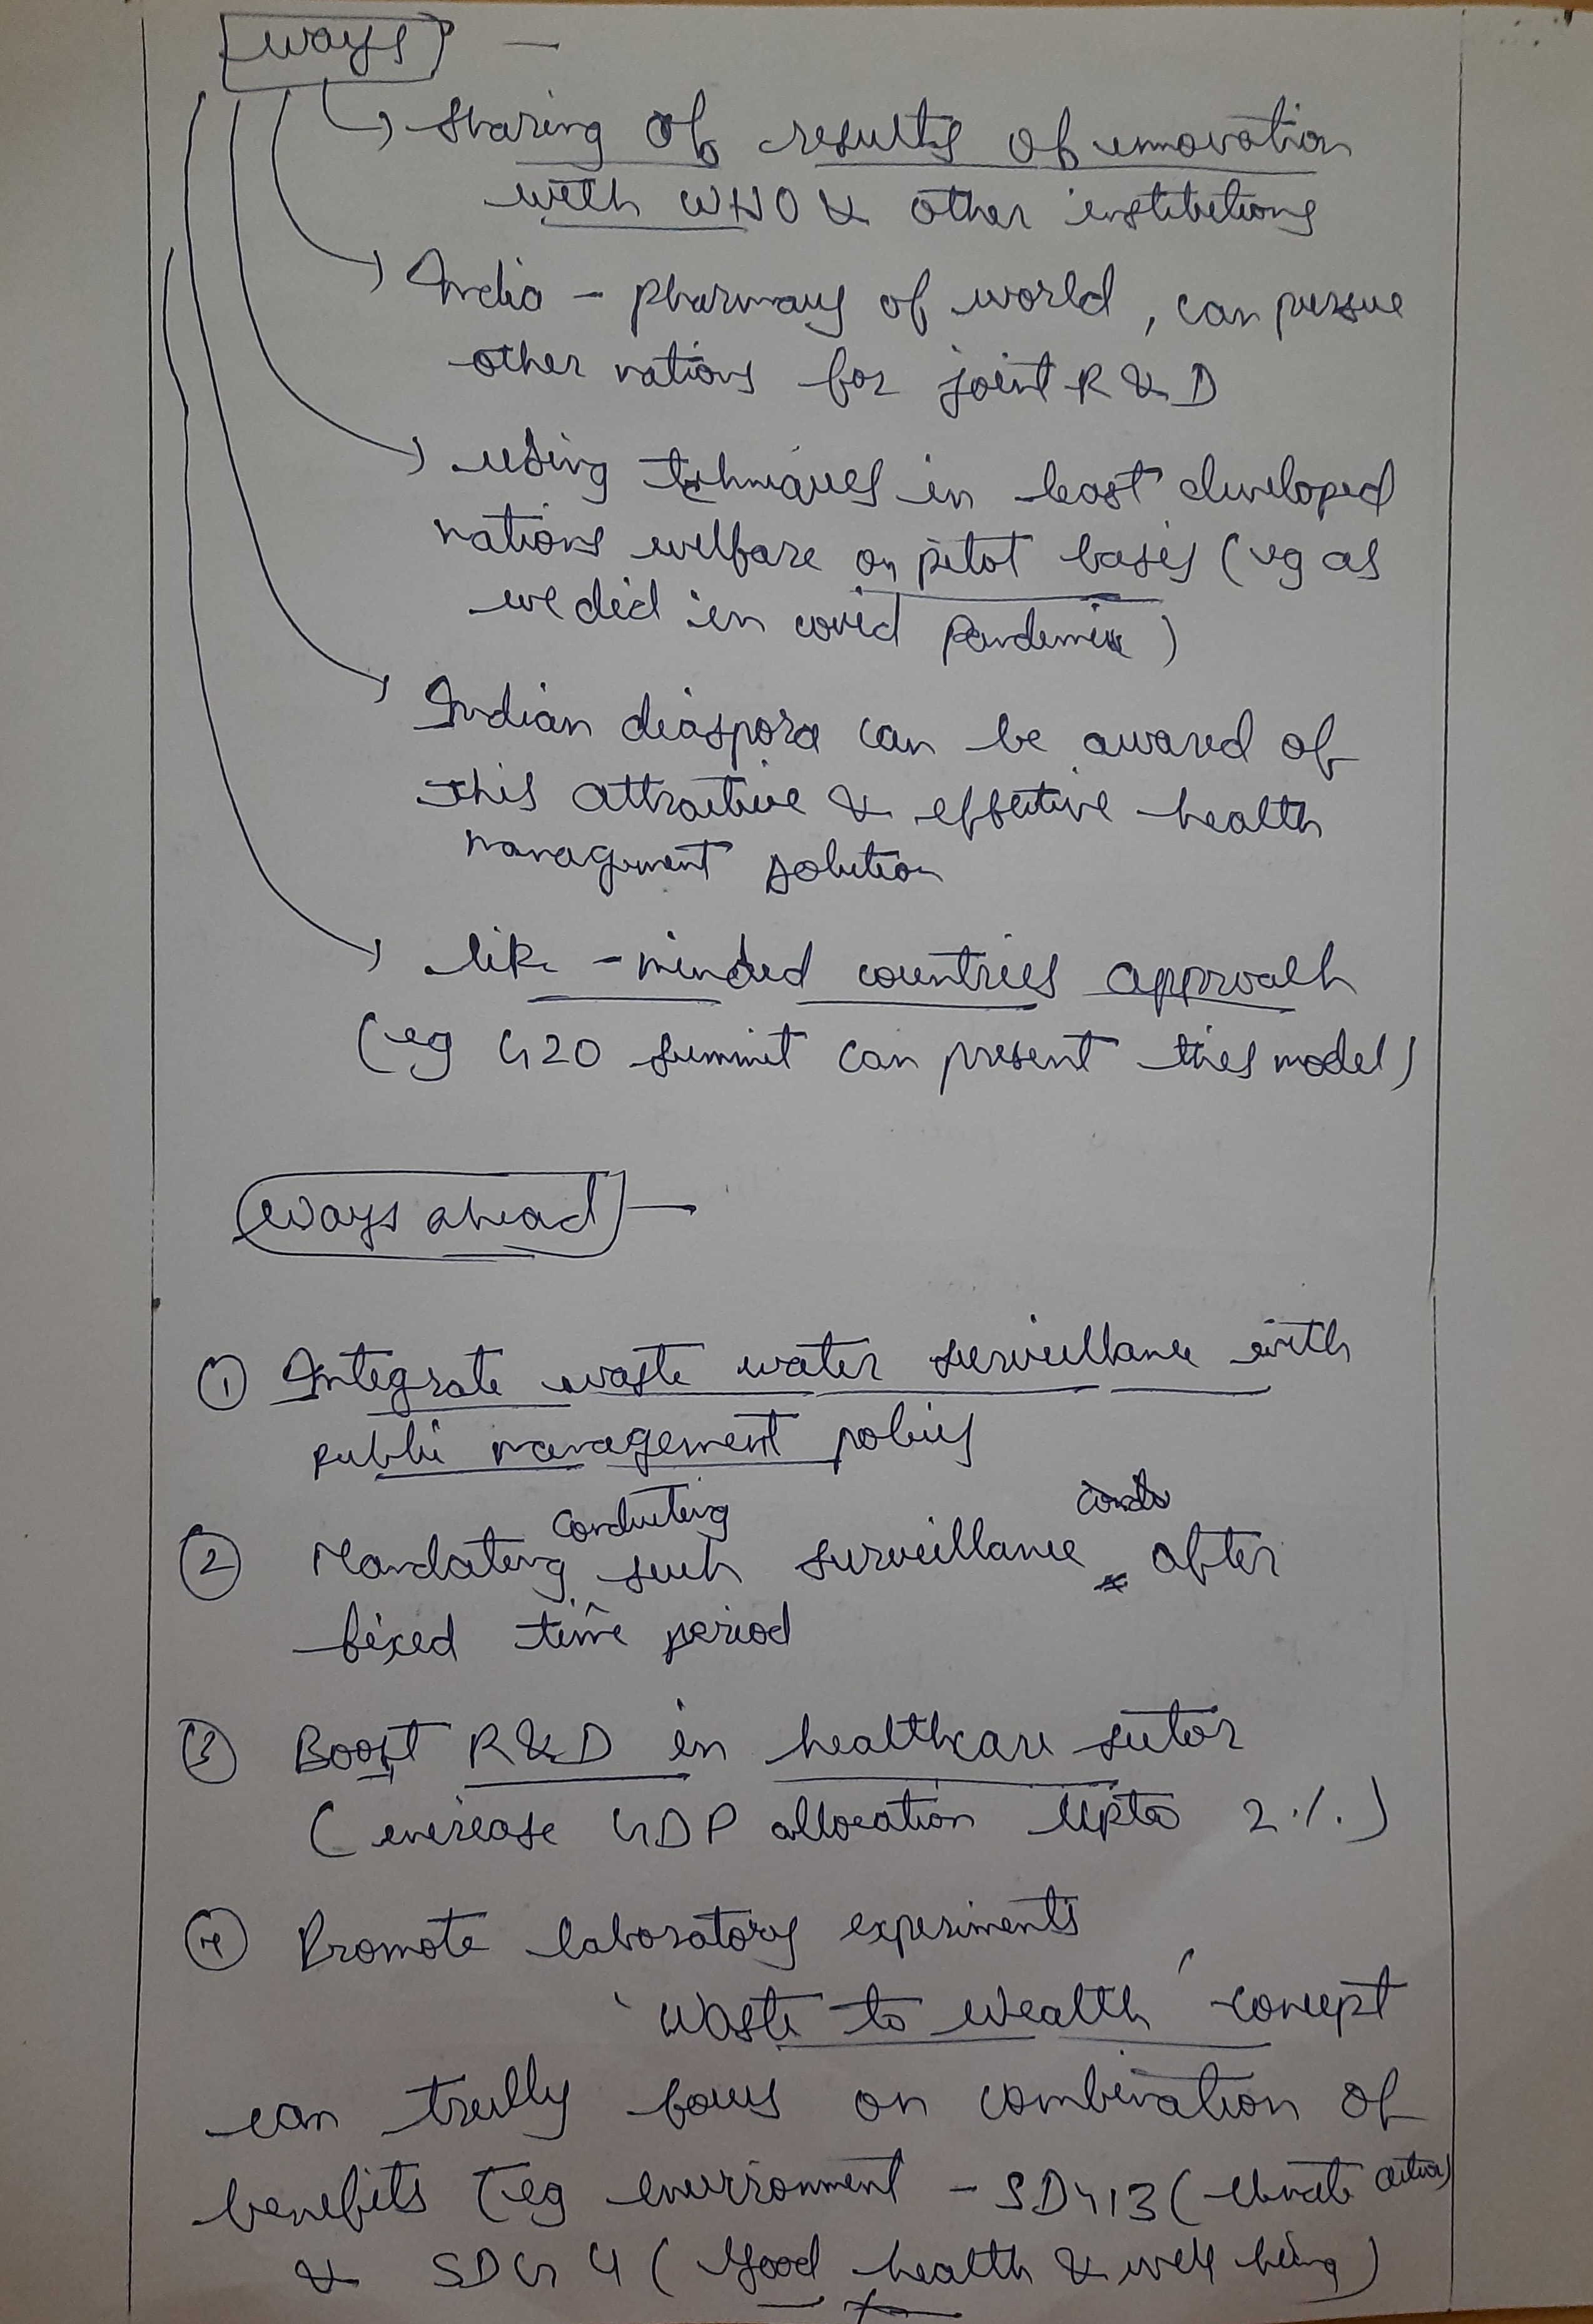 Ways —
→ Sharing of results of innovation
with WHO & other institutions
→ India - pharmacy of world, can persue
other nations for joint R & D
→ using techniques in least developed
nations welfare on pilot basis (eg as
we did in covid pandemic)
→ Indian diaspora can be awared of
this attractive & effective health
management solution
→ like-minded countries approach
(eg G20 summit can present this model)
Ways ahead —
① Integrate waste water surveillance with
public management policy
② Mandating conducting such surveillance after
fixed time period
③ Boost R&D in healthcare sector
(increase GDP allocation upto 2%)
④ Promote laboratory experiments
'Waste to Wealth' concept
can trully focus on combination of
benefits (eg environment - SDG13 (climate action)
& SDG 4 (Good health & well being)